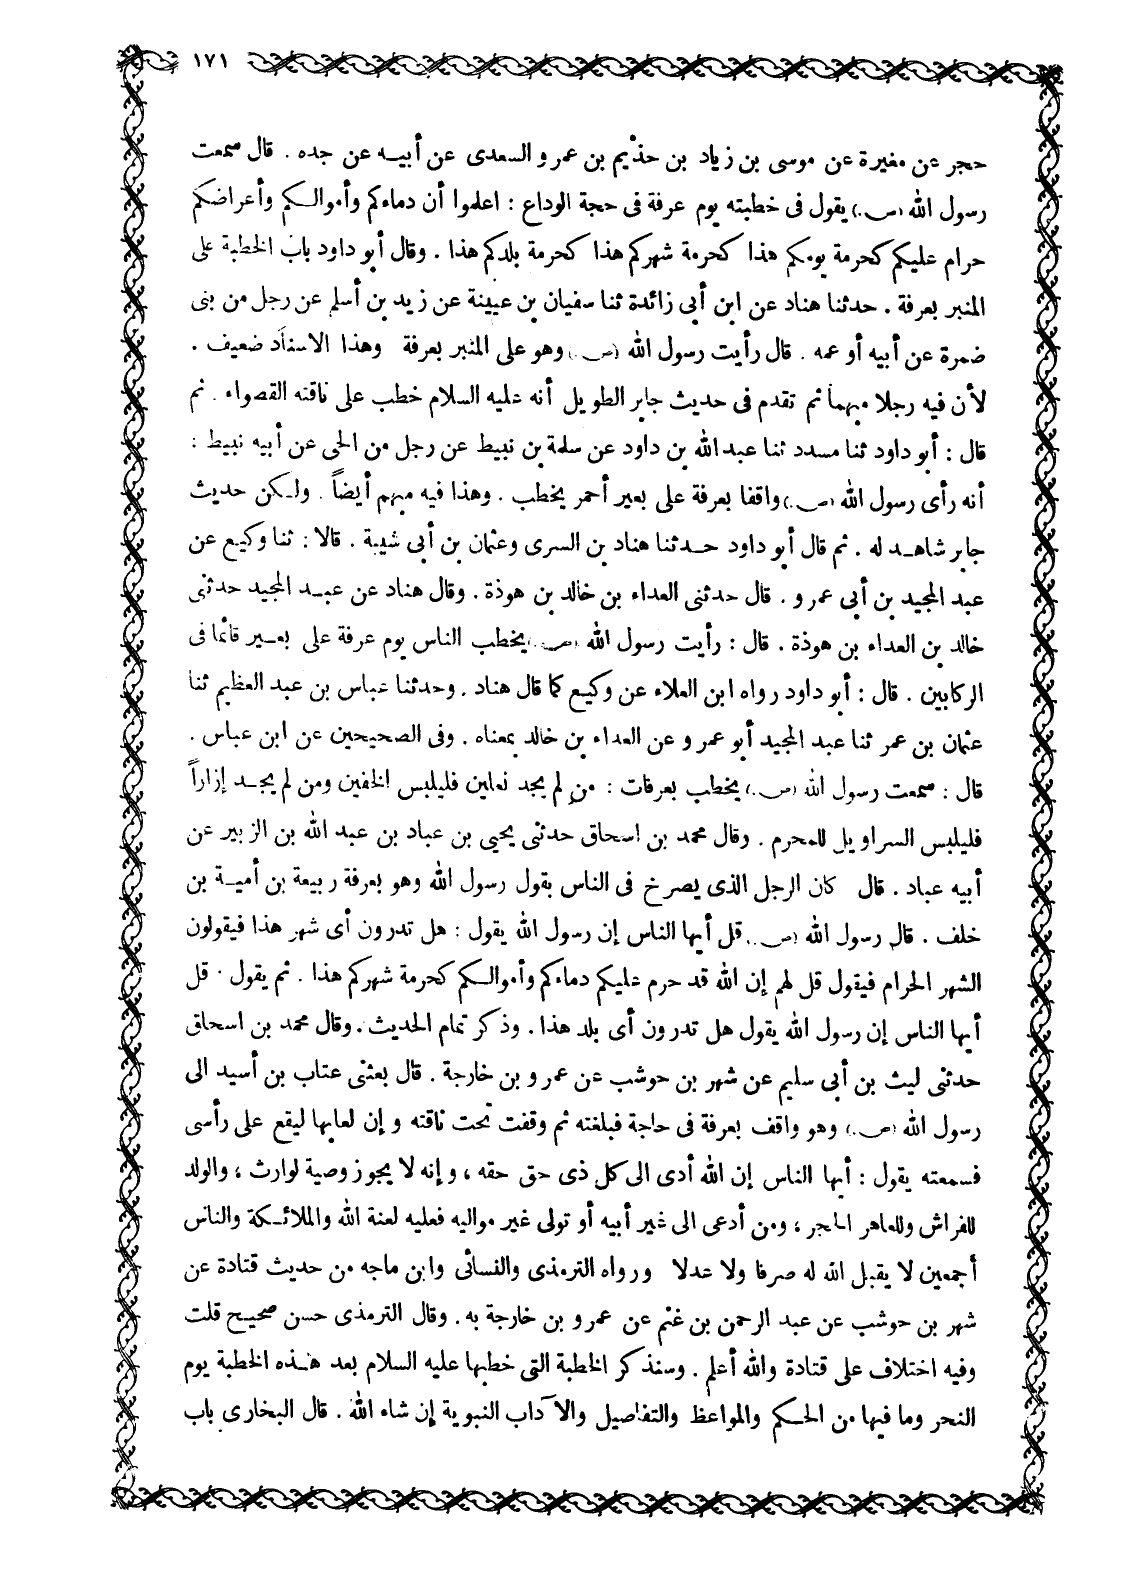 ١٧١
حجر عن مغيرة عن موسى بن زياد بن حذيم بن عمرو السعدى عن أبيه عن جده . قال سمعت
رسول الله (ص.) يقول فى خطبته يوم عرفة فى حجة الوداع : اعلموا أن دماءكم وأموالكم وأعراضكم
حرام عليكم كحرمة يومكم هذا كحرمة شهركم هذا كحرمة بلدكم هذا . وقال أبو داود باب الخطبة على
المنبر بعرفة . حدثنا هناد عن ابن أبى زائدة ثنا سفيان بن عيينة عن زيد بن أسلم عن رجل من بنى
ضمرة عن أبيه أو عمه . قال رأيت رسول الله (ص.) وهو على المنبر بعرفة وهذا الاسناد ضعيف .
لأن فيه رجلا مبهما ثم تقدم فى حديث جابر الطويل أنه عليه السلام خطب على ناقته القصواء . ثم
قال : أبو داود ثنا مسدد ثنا عبد الله بن داود عن سلمة بن نبيط عن رجل من الحى عن أبيه نبيط :
أنه رأى رسول الله (ص.) واقفا بعرفة على بعير أحمر يخطب . وهذا فيه مبهم أيضاً . ولكن حديث
جابر شاهد له . ثم قال أبو داود حدثنا هناد بن السرى وعثمان بن أبى شيبة . قالا : ثنا وكيع عن
عبد المجيد بن أبى عمرو . قال حدثنى العداء بن خالد بن هوذة . وقال هناد عن عبد المجيد حدثنى
خالد بن العداء بن هوذة . قال : رأيت رسول الله (ص.) يخطب الناس يوم عرفة على بعير قائما فى
الركابين . قال : أبو داود رواه ابن العلاء عن وكيع كما قال هناد . وحدثنا عباس بن عبد العظيم ثنا
عثمان بن عمر ثنا عبد المجيد أبو عمرو عن العداء بن خالد بمعناه . وفى الصحيحين عن ابن عباس .
قال : سمعت رسول الله (ص.) يخطب بعرفات : من لم يجد نعلين فليلبس الخفين ومن لم يجد إزاراً
فليلبس السراويل للمحرم . وقال محمد بن اسحاق حدثنى يحيى بن عباد بن عبد الله بن الزبير عن
أبيه عباد . قال كان الرجل الذى يصرخ فى الناس بقول رسول الله وهو بعرفة ربيعة بن أمية بن
خلف . قال رسول الله (ص.) قل أيها الناس إن رسول الله يقول : هل تدرون أى شهر هذا فيقولون
الشهر الحرام فيقول قل لهم إن الله قد حرم عليكم دماءكم وأموالكم كحرمة شهركم هذا . ثم يقول . قل
أيها الناس إن رسول الله يقول هل تدرون أى بلد هذا . وذكر تمام الحديث . وقال محمد بن اسحاق
حدثنى ليث بن أبى سليم عن شهر بن حوشب عن عمرو بن خارجة . قال بعثنى عتاب بن أسيد الى
رسول الله (ص.) وهو واقف بعرفة فى حاجة فبلغته ثم وقفت تحت ناقته و إن لعابها ليقع على رأسى
فسمعته يقول : أيها الناس إن الله أدى الى كل ذى حق حقه ، وإنه لا يجوز وصية لوارث ، والولد
للفراش وللعاهر الحجر ، ومن أدعى الى غير أبيه أو تولى غير مواليه فعليه لعنة الله والملائكة والناس
أجمعين لا يقبل الله له صرفا ولا عدلا ورواه الترمذى والنسائى وابن ماجه من حديث قتادة عن
شهر بن حوشب عن عبد الرحمن بن غنم عن عمرو بن خارجة به . وقال الترمذى حسن صحيح قلت
وفيه اختلاف على قتادة والله أعلم . وسنذكر الخطبة التى خطبها عليه السلام بعد هذه الخطبة يوم
النحر وما فيها من الحكم والمواعظ والتفاصيل والآداب النبوية إن شاء الله . قال البخارى باب